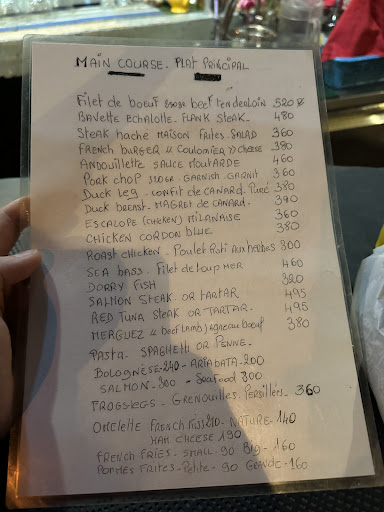 MAIN COURSE. PLAT PRINCIPAL
Filet de boeuf 300gr beef tenderloin 520
BAVETTE ECHALOTTE. FLANK STEAK. 480
STEAK haché MAISON FRITES. SALAD 360
FRENCH BURGER "COULOMIER" CHEESE 380
ANDOUILLETTE SAUCE MOUTARDE 460
PORK chop 300GR. GARNISH. GARNIT 360
DUCK LEG. CONFIT de CANARD. Pureé 380
Duck BREAST. MAGRET de CANARD. 390
ESCALOPE (CHICKEN) MILANAISE 360
CHICKEN CORDON BLUE 380
ROAST CHICKEN. Poulet Roti Aux herbes 300
SEA bass. Filet de loup MER 460
DORRY FISH 320
SALMON STEAK OR TARTAR 495
RED TUNA STEAK OR TARTAR. 495
MERGUEZ "(beef Lamb) agneau boeuf 380
PASTA. SPAGHETTI OR PENNE.
BOLOGNESE-240- ARIABATA-200
SALMON-300 - Seafood 300
FROGSLEGS - GRENOUILLES. PERSILLÉES. 360
OMELETTE FRENCH 210- NATURE-140
HAM CHEESE 190
FRENCH FRIES. SMALL. 90 BIG-160
POMMES FRITES-Petite- 90 GRANDE-160